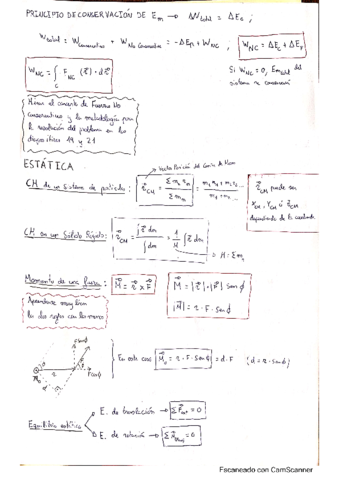 PRINCIPIO DE CONSERVACIÓN DE Em → ΔW total = ΔEc ;
W total = W conservativo + W No Conservativo = -ΔEp + W NC , W NC = ΔEc + ΔEp
W NC = ∫c F NC (r) · dr
Si W NC = 0, Em total del
sistema se conserva
Mirar el concepto de Fuerza No
Conservativa y la metodología para
la resolución del problema en las
diapositivas 19 y 21
ESTÁTICA
→ Vector Posición del Centro de Masas
CM de un Sistema de partículas: r CM = Σ mn rn / Σ mn = m1 r1 + m2 r2 ... / m1 + m2 ...
r CM puede ser
x CM, y CM ó z CM
dependiendo de la coordenada
CM en un Sólido Rígido: r CM = ∫ r dm / ∫ dm = 1/M ∫ r dm
→ M = Σ mi
Momento de una fuerza: M = r x F
M = |r| · |F| sen ϕ
|M| = r · F · sen ϕ
Aprenderse muy bien
las dos reglas con las manos
F sen ϕ
F cos ϕ
En este caso Mo = r · F · sen ϕ = d · F (d = r · sen ϕ)
Equilibrio estático
E. de translación → Σ F ext = 0
E. de rotación → Σ M = 0
Escaneado con CamScanner